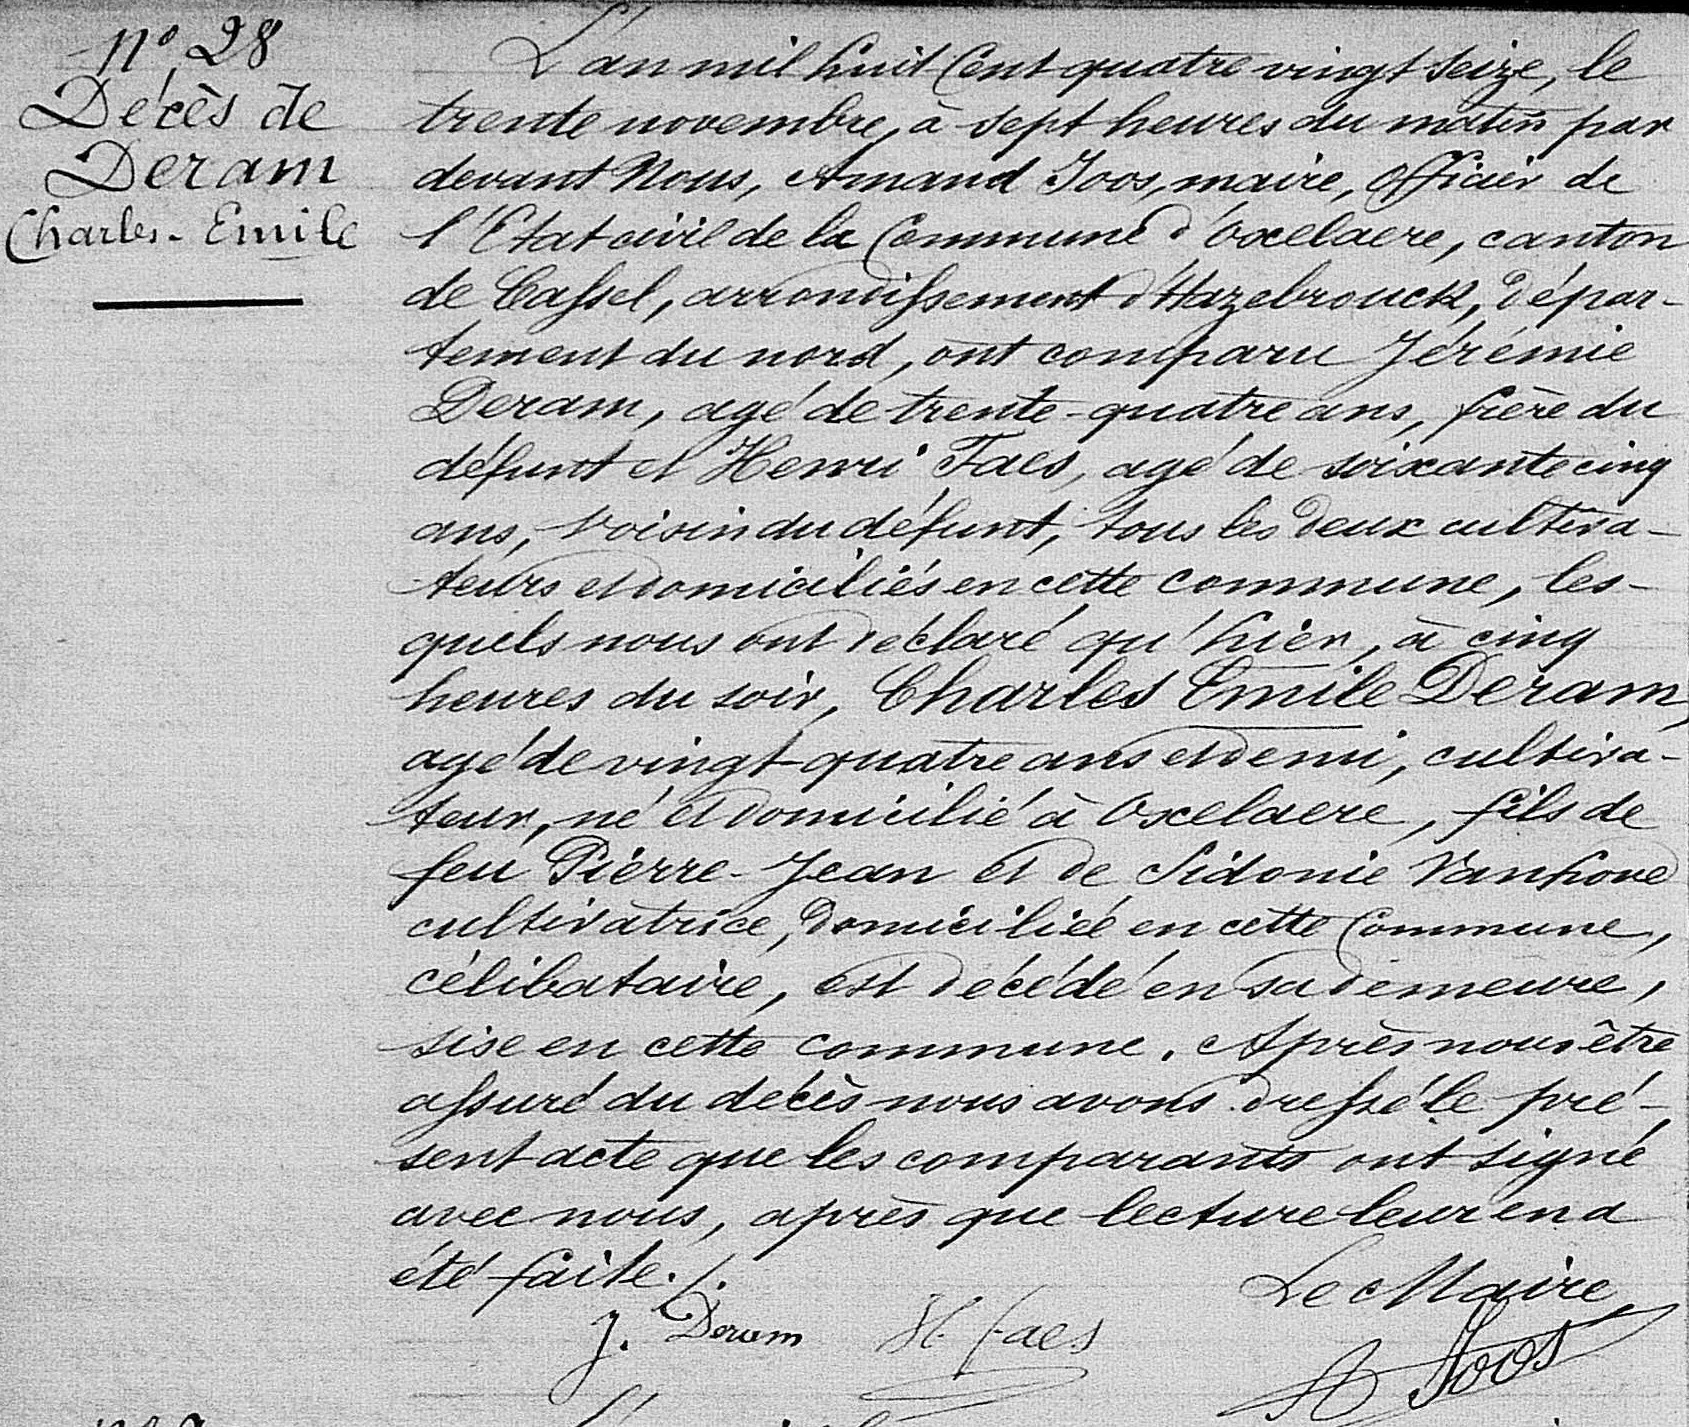 N° 28
Décès de
Deram
Charles-Emile
L'an mil huit cent quatre vingt seize, le
trente novembre, à sept heures du matin par
devant Nous, Amand Joos, maire, officier de
l'Etat civil de la Commune d'Oxelaere, canton
de Cassel, arrondissement d'Hazebrouck, dépar-
tement du nord, ont comparu Jérémie
Deram, agé de trente-quatre ans, frère du
défunt et Henri Faes, agé de soixante cinq
ans, voisin du défunt, tous les deux cultiva-
teurs et domiciliés en cette commune, les-
quels nous ont déclaré qu'hier, à cinq
heures du soir, Charles Emile Deram,
agé de vingt-quatre ans et demi, cultiva-
teur, né et domicilié à Oxelaere, fils de
feu Pierre-Jean et de Sidonie Vanhove
cultivatrice, domiciliée en cette Commune,
célibataire, est décédé en sa demeure,
sise en cette commune. Après nous être
assuré du décès nous avons dressé le pré-
sent acte que les comparants ont signé
avec nous, après que lecture leur en a
été faite./.
Le Maire
J. Deram H. Faes
A Joos